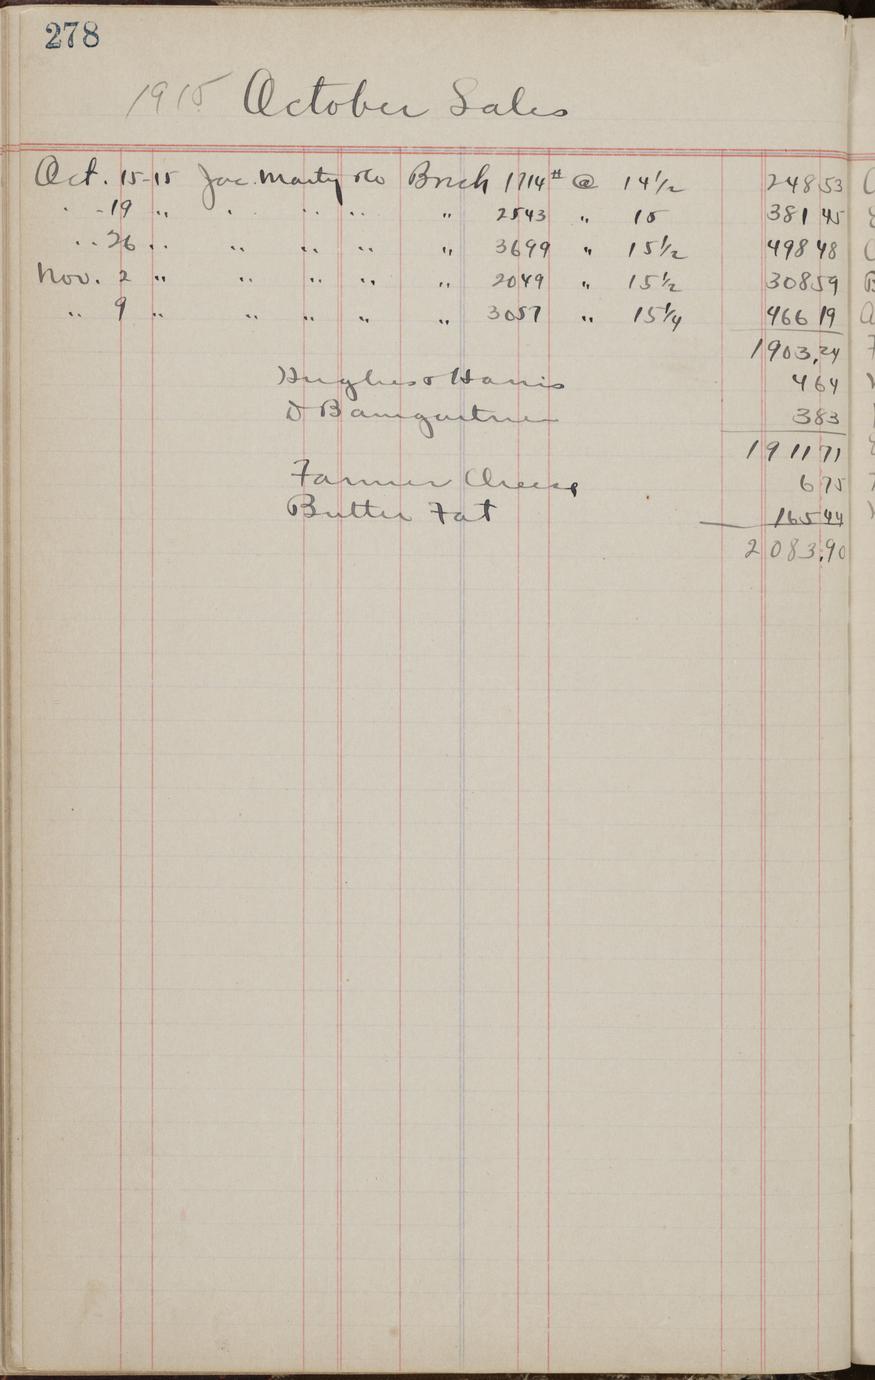 278
1915 October Sales
Oct. 15-15 Jac. Marty & Co Brick 1714# @ 14 1/2 248 53
" -19 " " " " " 2543 " 15 381 45
" 26 " " " " " 3699 " 15 1/2 498 48
Nov. 2 " " " " " 2049 " 15 1/2 308 59
" 9 " " " " " 3057 " 15 1/4 466 19
1903,24
Hughes & Harris 4 64
D Baumgartner 3 83
1911 71
Farmer Cheese 6 75
Butter Fat 165 44
2083.90